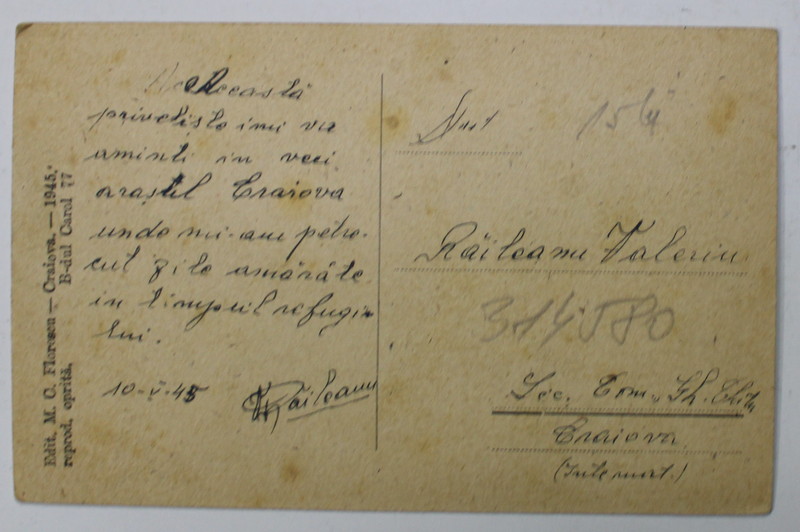 Această
priveliște îmi va
aminti in veci
orașul Craiova
unde mi-am petre-
cut zile amărâte
in timpul refugiu-
lui.
10-V-45 VRăileanu
Edit. M. C. Florescu — Craiova. — 1945.
reprod. oprită. B-dul Carol 77
Răileanu Valeriu
314580
Lic. Com. „Gh. Chițu"
Craiova
(Internat.)